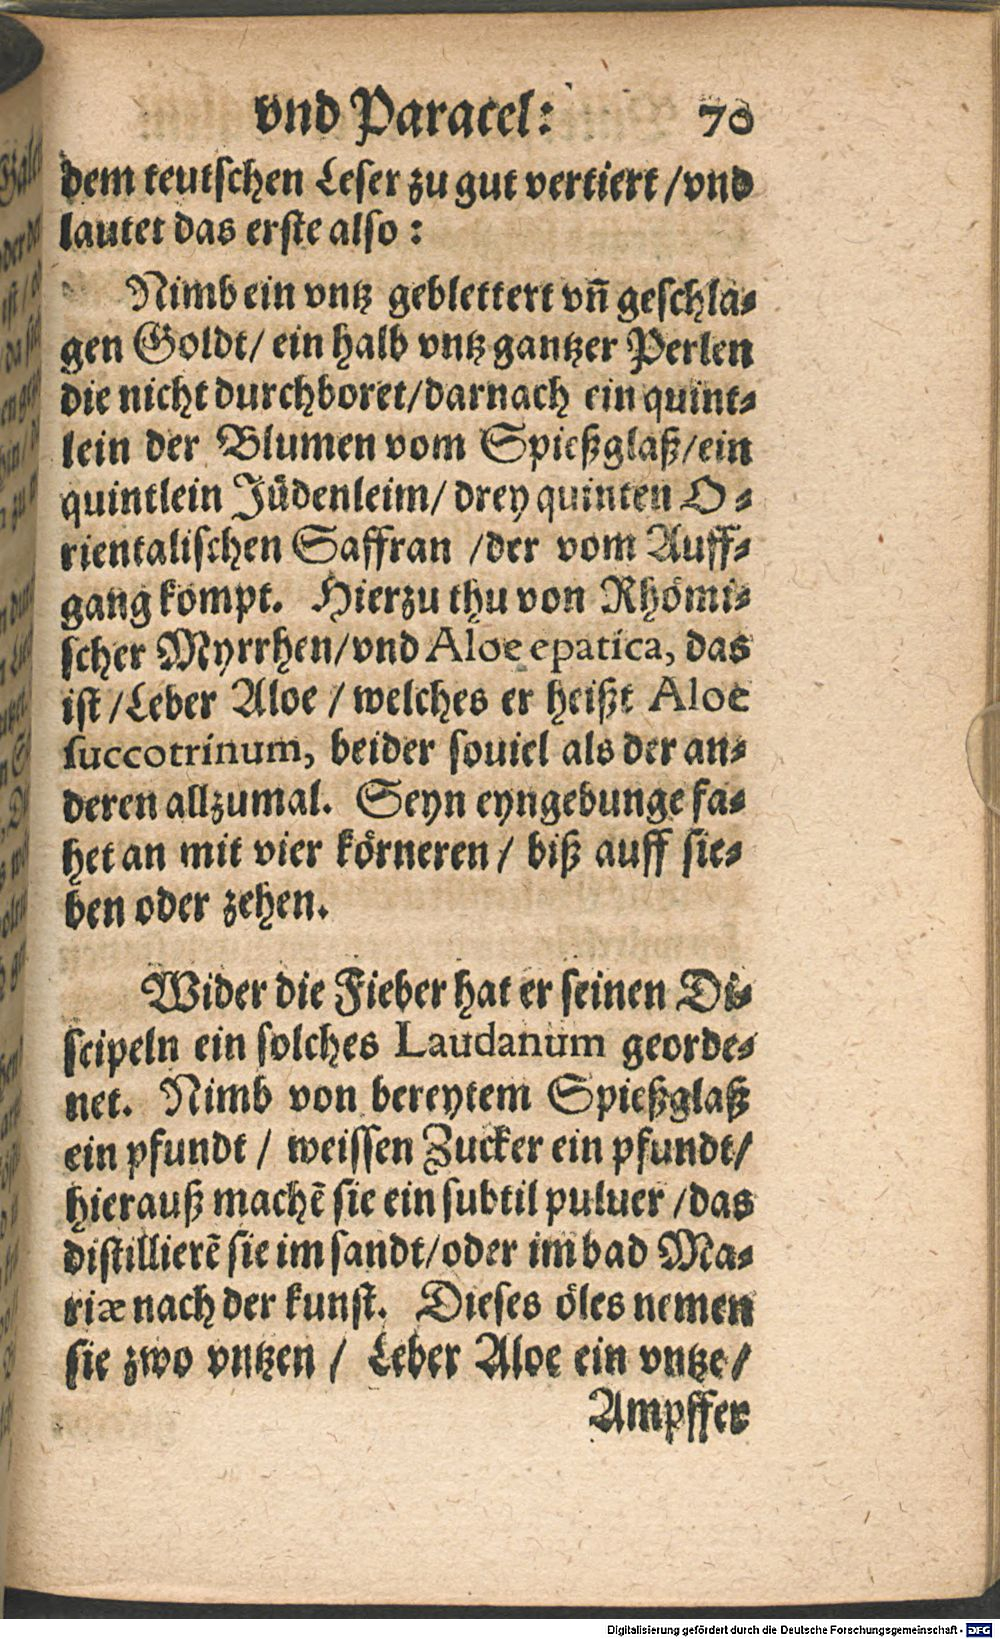 vnd Paracel: 70
dem teutschen Leser zu gut vertiert / vnd
lautet das erste also :
Nimb ein vntz geblettert vn̄ geschla⸗
gen Goldt / ein halb vntz gantzer Perlen
die nicht durchboret / darnach ein quint⸗
lein der Blumen vom Spießglaß / ein
quintlein Jüdenleim / drey quinten O⸗
rientalischen Saffran / der vom Auff⸗
gang kompt. Hierzu thu von Rhömi⸗
scher Myrrhen / vnd Aloe epatica, das
ist / Leber Aloe / welches er heißt Aloe
succotrinum, beider souiel als der an⸗
deren allzumal. Seyn eyngebunge fa⸗
het an mit vier körneren / biß auff sie⸗
ben oder zehen.
Wider die Fieber hat er seinen Di⸗
scipeln ein solches Laudanum georde⸗
net. Nimb von bereytem Spießglaß
ein pfundt / weissen Zucker ein pfundt /
hierauß machē sie ein subtil puluer / das
distillierē sie im sandt / oder im bad Ma⸗
riæ nach der kunst. Dieses öles nemen
sie zwo vntzen / Leber Aloe ein vntze /
Ampffer
Digitalisierung gefördert durch die Deutsche Forschungsgemeinschaft - DFG